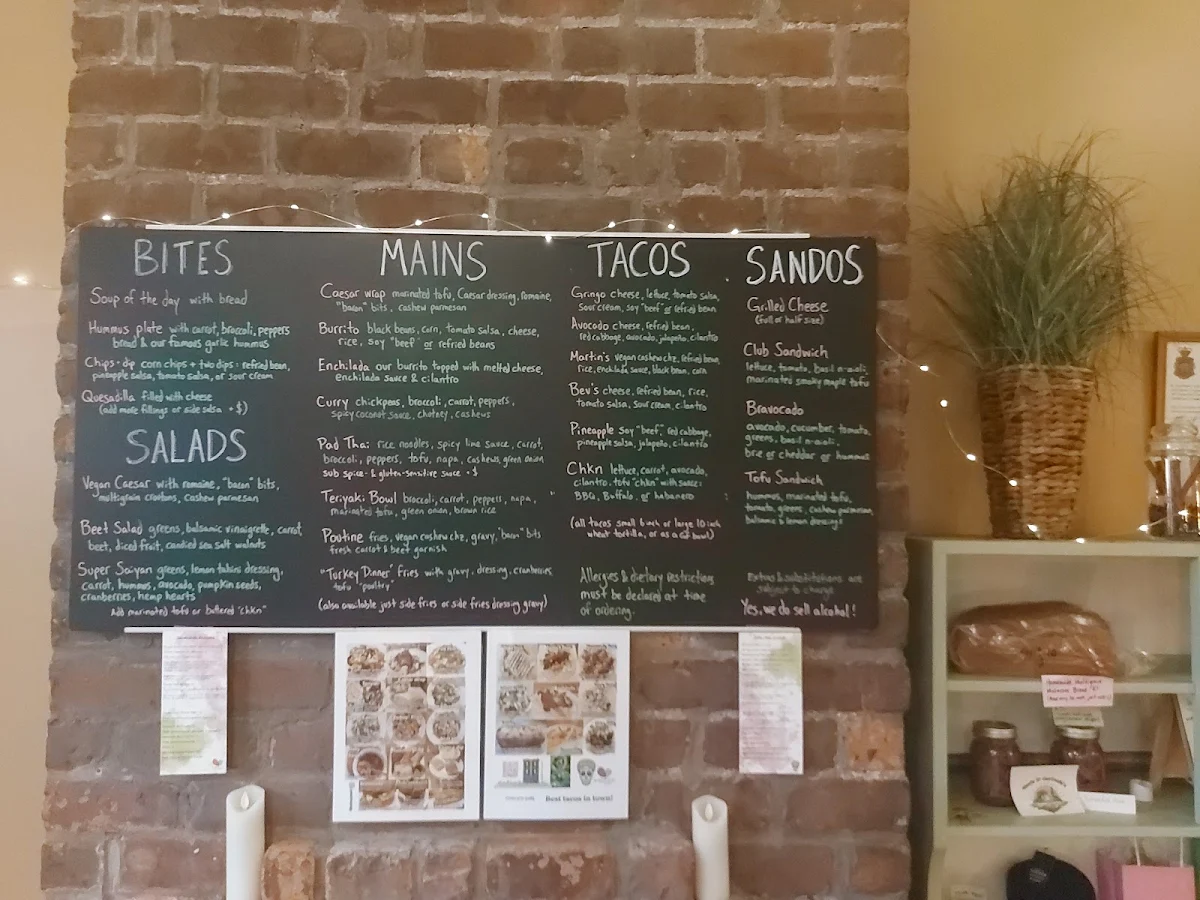 BITES
Soup of the day with bread
Hummus plate with carrot, broccoli, peppers
bread & our famous garlic hummus
Chips + dip corn chips + two dips: refried bean,
pineapple salsa, tomato salsa, or sour cream
Quesadilla filled with cheese
(add more fillings or side salsa + $)
SALADS
Vegan Caesar with romaine, "bacon" bits,
multigrain croutons, cashew parmesan
Beet Salad greens, balsamic vinaigrette, carrot,
beet, diced fruit, candied sea salt walnuts
Super Saiyan greens, lemon tahini dressing,
carrot, hummus, avocado, pumpkin seeds,
cranberries, hemp hearts
Add marinated tofu or buttered "chkn"
MAINS
Caesar wrap marinated tofu, Caesar dressing, romaine,
"bacon" bits, cashew parmesan
Burrito black beans, corn, tomato salsa, cheese,
rice, soy "beef" or refried beans
Enchilada our burrito topped with melted cheese,
enchilada sauce & cilantro
Curry chickpeas, broccoli, carrot, peppers,
spicy coconut sauce, chutney, cashews
Pad Thai rice noodles, spicy lime sauce, carrot,
broccoli, peppers, tofu, napa, cashews, green onion
sub spice- & gluten-sensitive sauce + $
Teriyaki Bowl broccoli, carrot, peppers, napa,
marinated tofu, green onion, brown rice
Poutine fries, vegan cashew chz, gravy, "bacon" bits
fresh carrot & beet garnish
"Turkey Dinner" fries with gravy, dressing, cranberries
tofu "poultry"
(also available just side fries or side fries dressing gravy)
TACOS
Gringo cheese, lettuce, tomato salsa,
sour cream, soy "beef" or refried bean
Avocado cheese, refried bean,
red cabbage, avocado, jalapeño, cilantro
Martin's vegan cashew chz, refried bean,
rice, enchilada sauce, black bean, corn
Bev's cheese, refried bean, rice,
tomato salsa, sour cream, cilantro
Pineapple soy "beef", red cabbage,
pineapple salsa, jalapeño, cilantro
Chkn lettuce, carrot, avocado,
cilantro, tofu "chkn" with sauce:
BBQ, Buffalo, or habanero
(all tacos small 6 inch or large 10 inch
wheat tortilla, or as a GF bowl)
Allergies & dietary restriction
must be declared at time
of ordering.
SANDOS
Grilled Cheese
(full or half size)
Club Sandwich
lettuce, tomato, basil n-aioli,
marinated smoky maple tofu
Bravocado
avocado, cucumber, tomato,
greens, basil n-aioli,
brie or cheddar or hummus
Tofu Sandwich
hummus, marinated tofu,
tomato, greens, cashew parmesan,
balsamic & lemon dressings
Extras & substitutions are
subject to change
Yes, we do sell alcohol!
Best tacos in town!